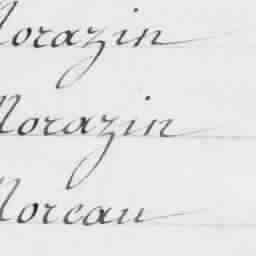 Morazin
Morazin
Moreau